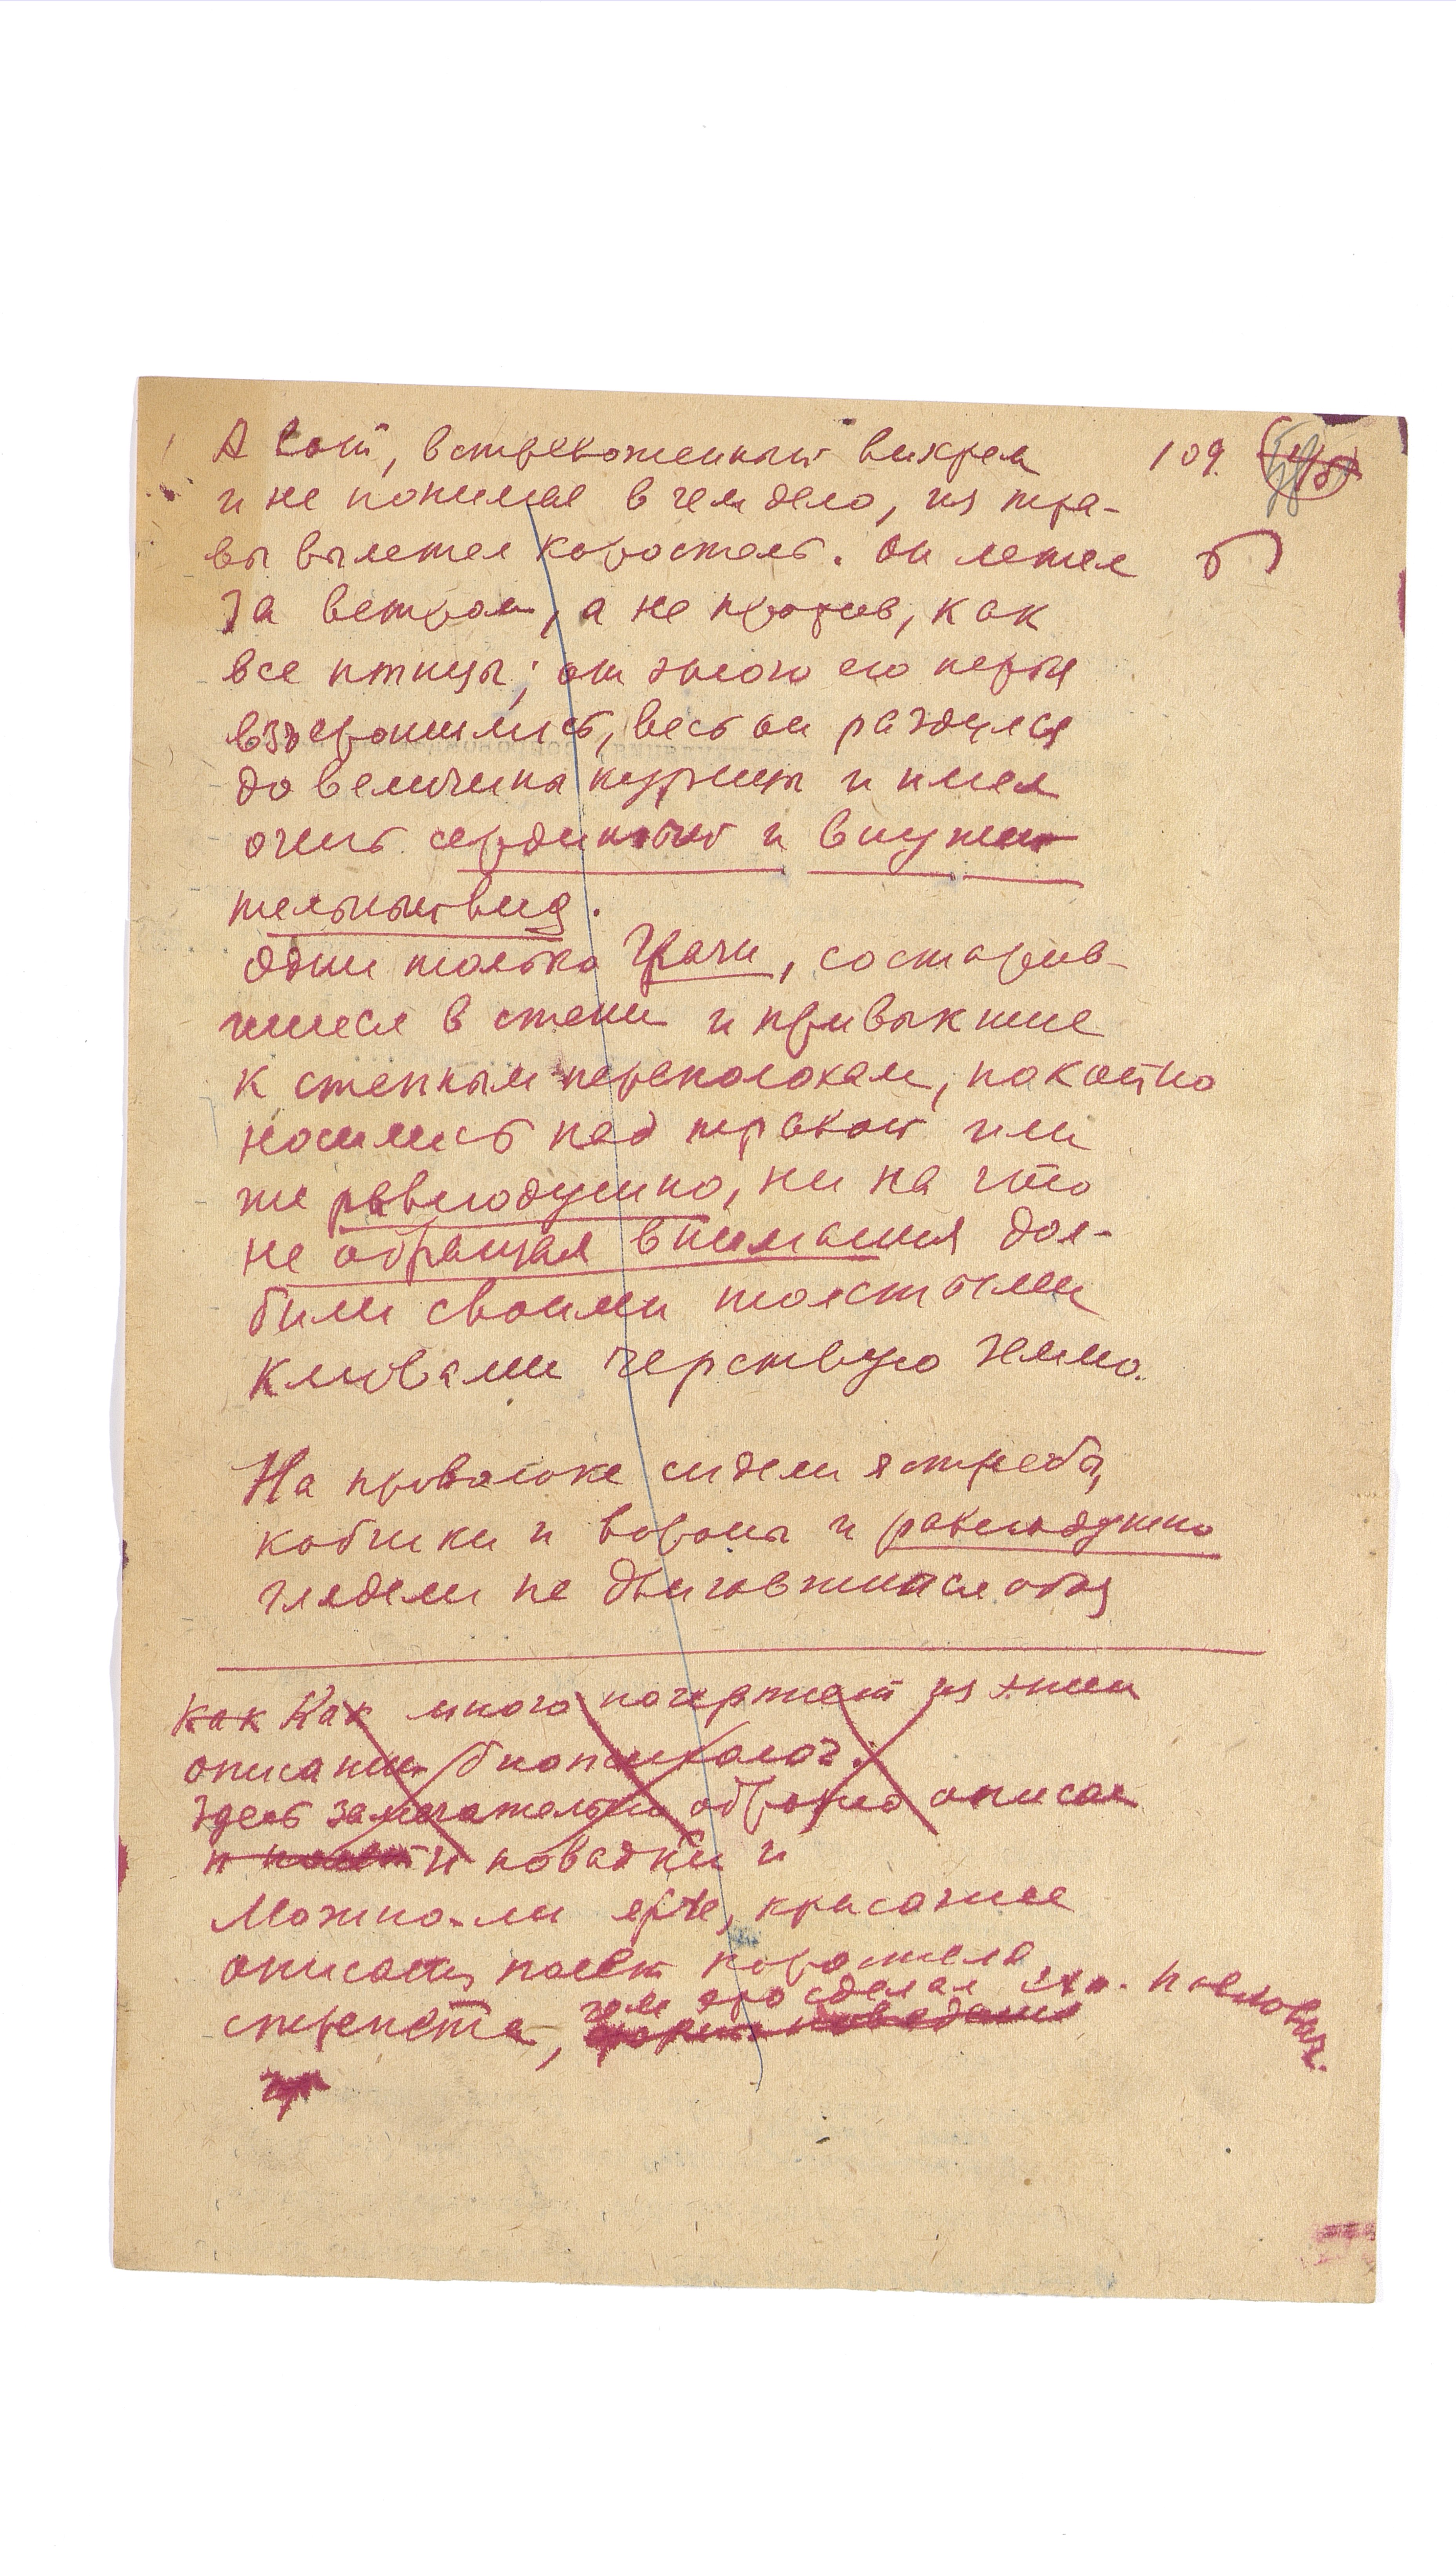 А вот, встревоженный вихрем 109.
и не понимая в чем дело, из тра-
вы вылетел коростель. Он летел б)
за ветром, а не против, как
все птицы; от этого его перья
взъерошились, весь он раздулся
до величины курицы и имел
очень сердитый и внуши
тельный вид.
Одни только грачи, состарив-
шиеся в степи и привыкшие
к степным переполохам, покойно
носились над травой или
же равнодушно, ни на что
не обращая внимания дол-
били своими толстыми
клювами черствую землю.
На проволоке сидели ястреба,
кобчики и вороны и равнодушно
глядели на двигавшийся обоз
как Как много почерпнет из этих
описаний биопсихолог.
Здесь замечательно образно описан
и полет и повадки и
Можно-ли ярче, красочнее
описать полет коростеля
стрепета, чем это сделал Ант. Павлович.